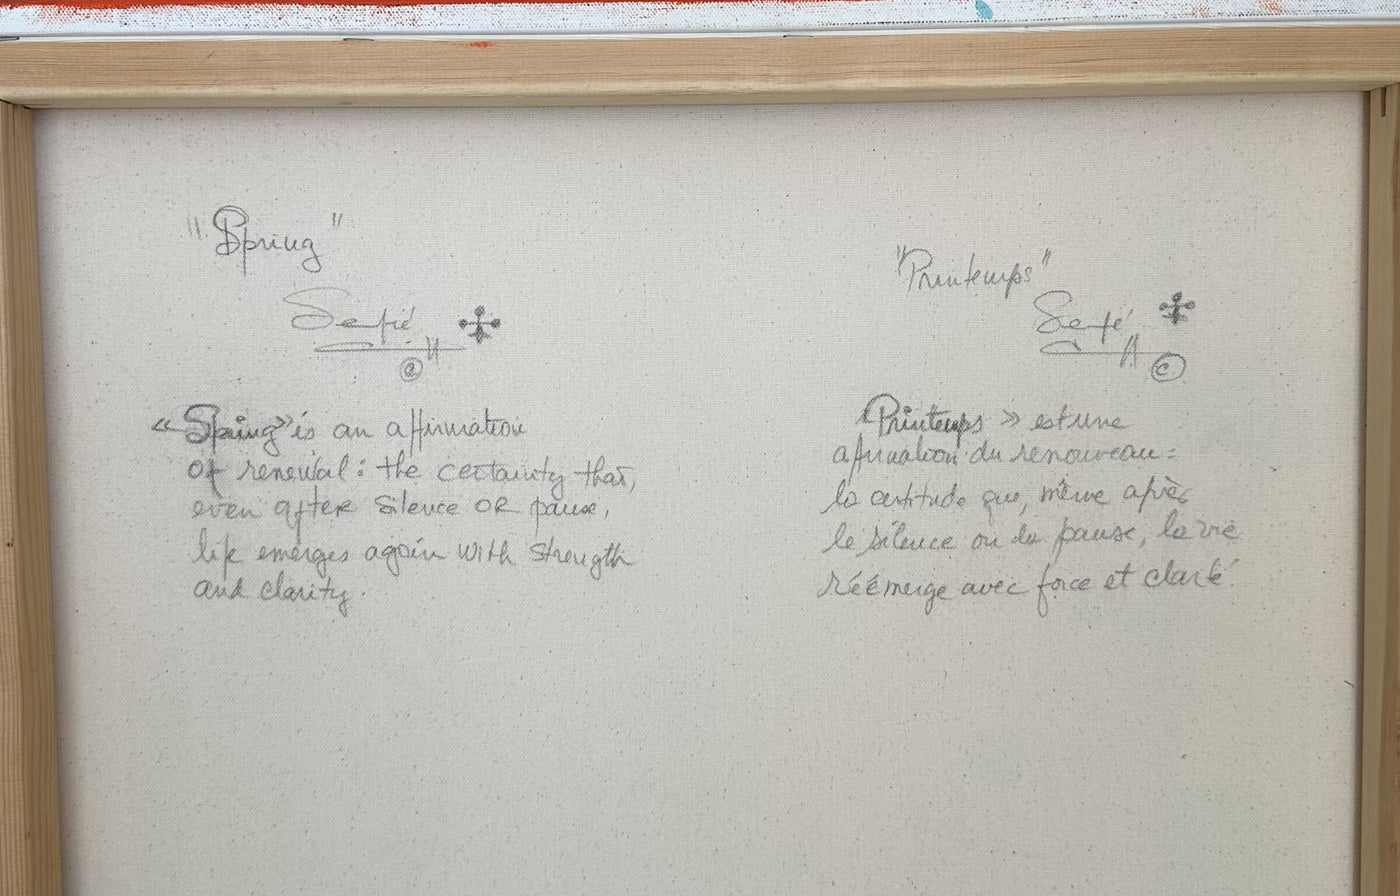 "Spring"
©
« Spring » is an affirmation
of renewal : the certainty that,
even after silence OR pause,
life emerges again with strength
and clarity.
"Printemps"
©
Printemps » est une
affirmation du renouveau :
la certitude que, même après
le silence ou la pause, la vie
réémerge avec force et clarté